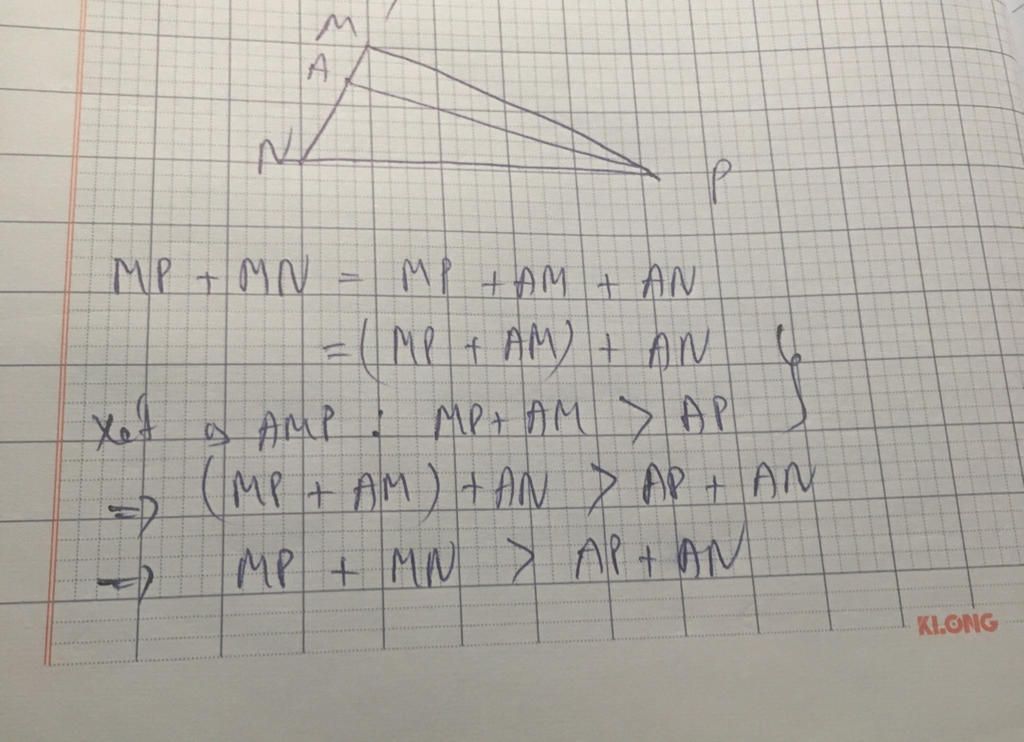 M
A
N
P
MP + MN = MP + AM + AN
= (MP + AM) + AN
Xét △ AMP : MP + AM > AP
=> (MP + AM) + AN > AP + AN
=> MP + MN > AP + AN
KLONG